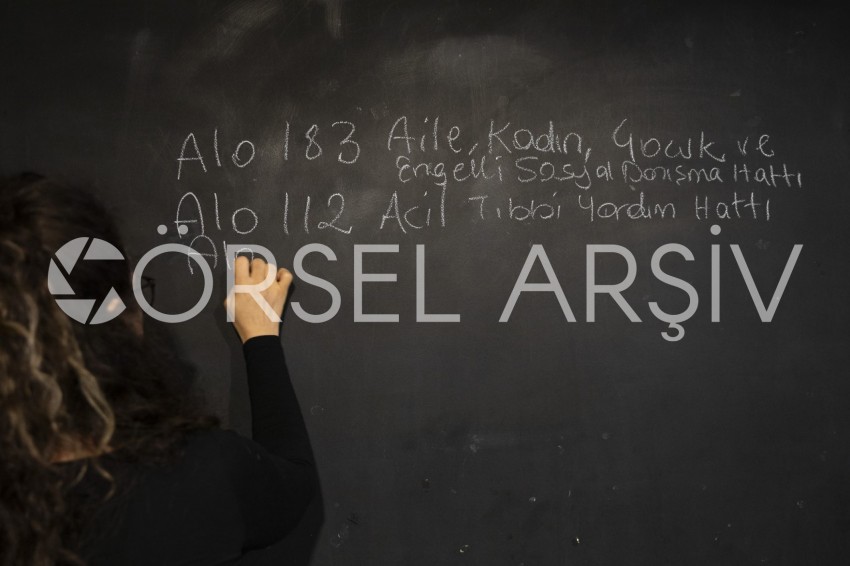 Alo 183 Aile, Kadın, Çocuk ve
Engelli Sosyal Danışma Hattı
Alo 112 Acil Tıbbi Yardım Hattı
Alo
GÖRSEL ARŞİV